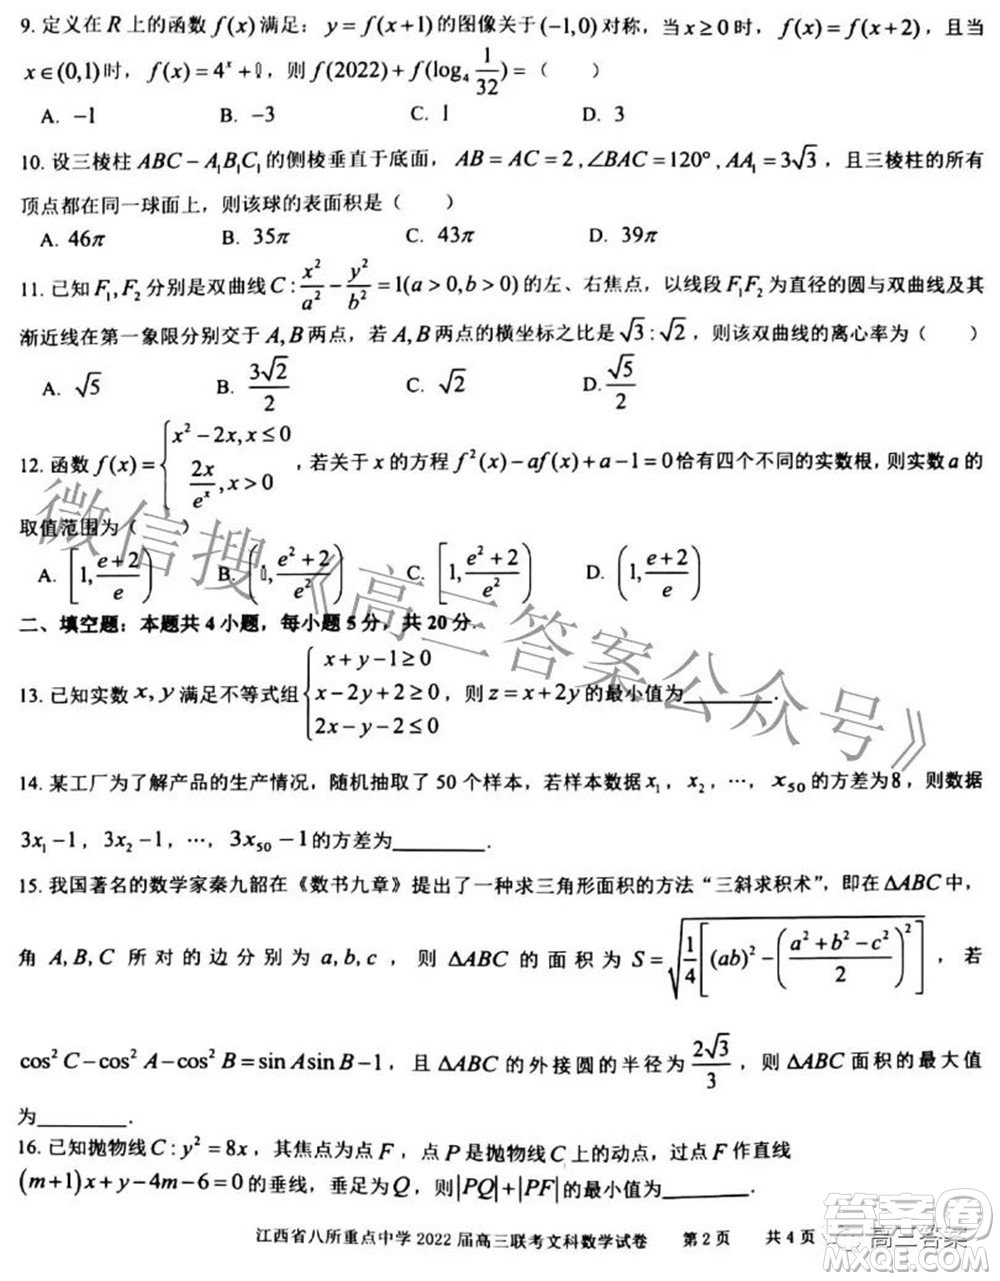 9. 定义在 R 上的函数 f(x) 满足：y = f(x+1) 的图像关于 (-1,0) 对称，当 x ≥ 0 时，f(x) = f(x+2)，且当
x∈(0,1) 时，f(x) = 4^x + ，则 f(2022) + f(log_4 1/32) = （　　）
A. -1　B. -3　C. 1　D. 3
10. 设三棱柱 ABC - A_1B_1C_1 的侧棱垂直于底面，AB = AC = 2, ∠BAC = 120°, AA_1 = 3√3，且三棱柱的所有
顶点都在同一球面上，则该球的表面积是（　　）
A. 46π　B. 35π　C. 43π　D. 39π
11. 已知 F_1, F_2 分别是双曲线 C : x^2/a^2 - y^2/b^2 = 1(a > 0, b > 0) 的左、右焦点，以线段 F_1F_2 为直径的圆与双曲线及其
渐近线在第一象限分别交于 A, B 两点，若 A, B 两点的横坐标之比是 √3 : √2，则该双曲线的离心率为（　　）
A. √5　B. 3√2/2　C. √2　D. √5/2
12. 函数 f(x) = { x^2 - 2x, x ≤ 0 ; 2x/e^x, x > 0 ，若关于 x 的方程 f^2(x) - af(x) + a - 1 = 0 恰有四个不同的实数根，则实数 a 的
取值范围为（　　）
A. [1, (e+2)/e)　B. ( ,(e^2+2)/e^2)　C. [1, (e^2+2)/e^2)　D. (1, (e+2)/e)
二、填空题：本题共 4 小题，每小题 5 分，共 20 分.
13. 已知实数 x, y 满足不等式组 { x + y - 1 ≥ 0 ; x - 2y + 2 ≥ 0 ; 2x - y - 2 ≤ 0 ，则 z = x + 2y 的最小值为________.
14. 某工厂为了解产品的生产情况，随机抽取了 50 个样本，若样本数据 x_1，x_2，…，x_50 的方差为 8，则数据
3x_1 - 1，3x_2 - 1，…，3x_50 - 1 的方差为________.
15. 我国著名的数学家秦九韶在《数书九章》提出了一种求三角形面积的方法“三斜求积术”，即在 ΔABC 中，
角 A, B, C 所对的边分别为 a, b, c，则 ΔABC 的面积为 S = √(1/4[(ab)^2 - ((a^2 + b^2 - c^2)/2)^2])，若
cos^2 C - cos^2 A - cos^2 B = sin A sin B - 1，且 ΔABC 的外接圆的半径为 2√3/3，则 ΔABC 面积的最大值
为________.
16. 已知抛物线 C : y^2 = 8x，其焦点为点 F，点 P 是抛物线 C 上的动点，过点 F 作直线
(m+1)x + y - 4m - 6 = 0 的垂线，垂足为 Q，则 |PQ| + |PF| 的最小值为________.
江西省八所重点中学 2022 届高三联考文科数学试卷　第 2 页　共 4 页
微信搜《高三答案公众号》
高三答案
MXQE.COM